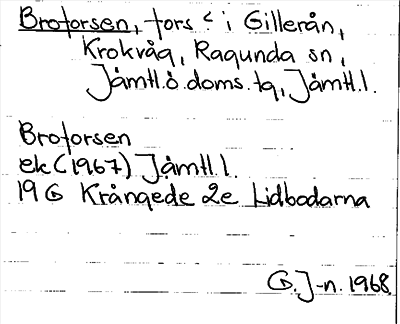 Broforsen, fors i Gillerån,
Krokvåg, Ragunda sn,
Jämtl.ö.doms.tg, Jämtl.l.
Broforsen
ek (1967) Jämtl.l.
19 G Krångede 2e Lidbodarna
G.J-n. 1968